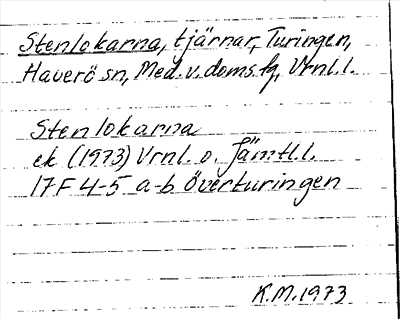 Stenlokarna, tjärnar, Turingen,
Haverö sn, Med. v. doms. fg, Vrnl. l.
Stenlokarna
ek (1973) Vrnl. o. Jämtl. l.
17 F 4-5 a-b Överturingen
K.M. 1973